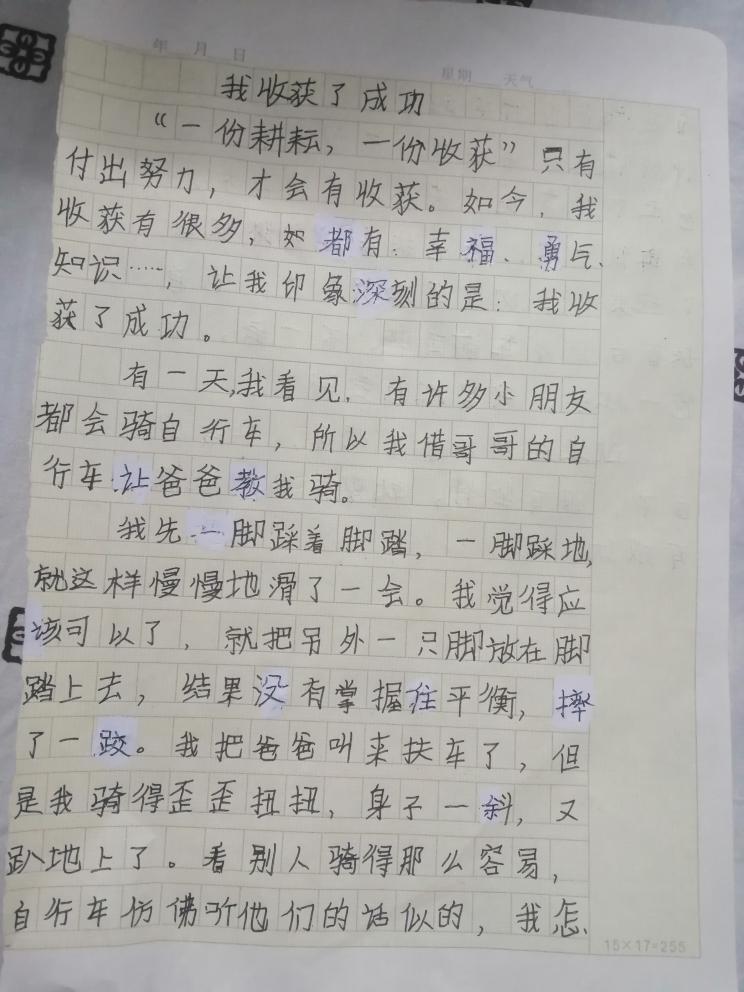 年 月 日
星期 天气
我收获了成功
“一份耕耘，一份收获”只有
付出努力，才会有收获。如今，我
收获有很多，如都有：幸福、勇气、
知识……，让我印象深刻的是：我收
获了成功。
有一天,我看见，有许多小朋友
都会骑自行车，所以我借哥哥的自
行车让爸爸教我骑。
我先一脚踩着脚踏，一脚踩地,
就这样慢慢地滑了一会。我觉得应
该可以了，就把另外一只脚放在脚
踏上去，结果没有掌握住平衡，摔
了一跤。我把爸爸叫来扶车了，但
是我骑得歪歪扭扭，身子一斜，又
趴地上了。看别人骑得那么容易，
自行车仿佛听他们的话似的，我怎
15×17=255